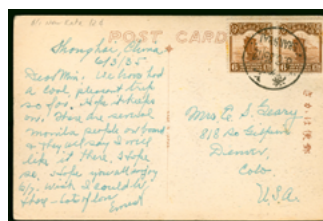 POST CARD
Shanghai, China
6/3/35
Dear Min, We have had
a cool, pleasant trip
so far. Hope it keeps
on. There are several
Manila people on board
& they all say I will
like it there. Hope
so. Hope you all enjoy
Wish I could be
there - Lots of love
Ernest
Mrs E. S. Geary
818 So Gaylord
Denver,
Colo.
U.S.A.